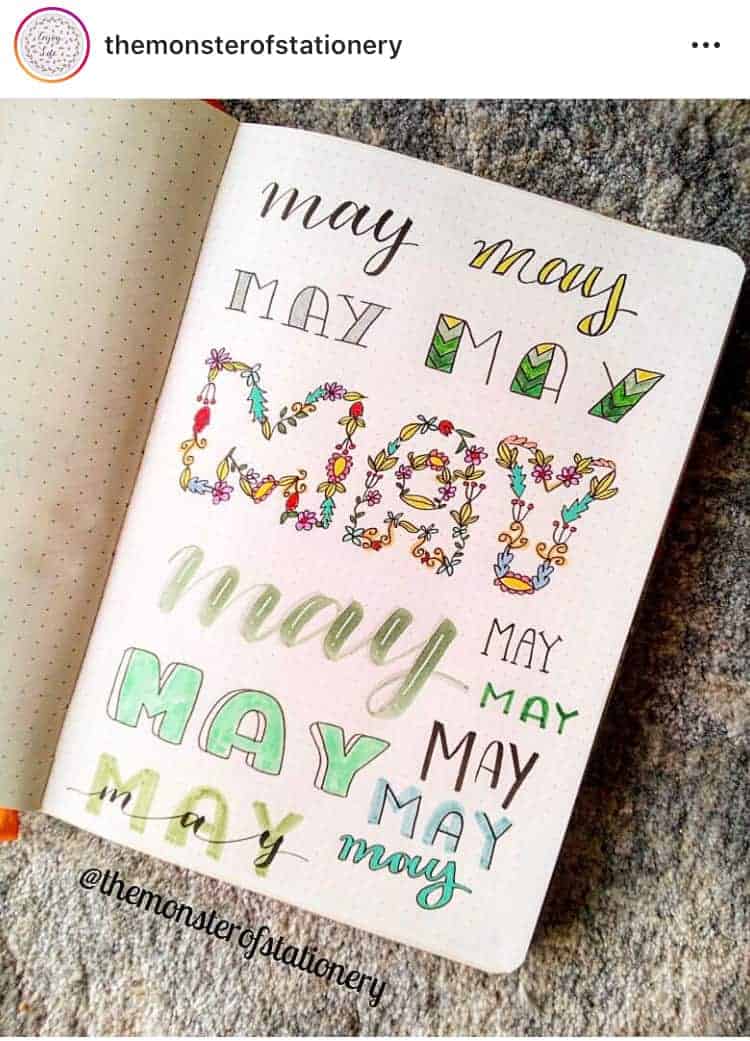 Enjoy
Life
themonsterofstationery
may may
MAY MAY
May
may
MAY
MAY
MAY
MAY
MAY
MAY
may
may
@themonsterofstationery